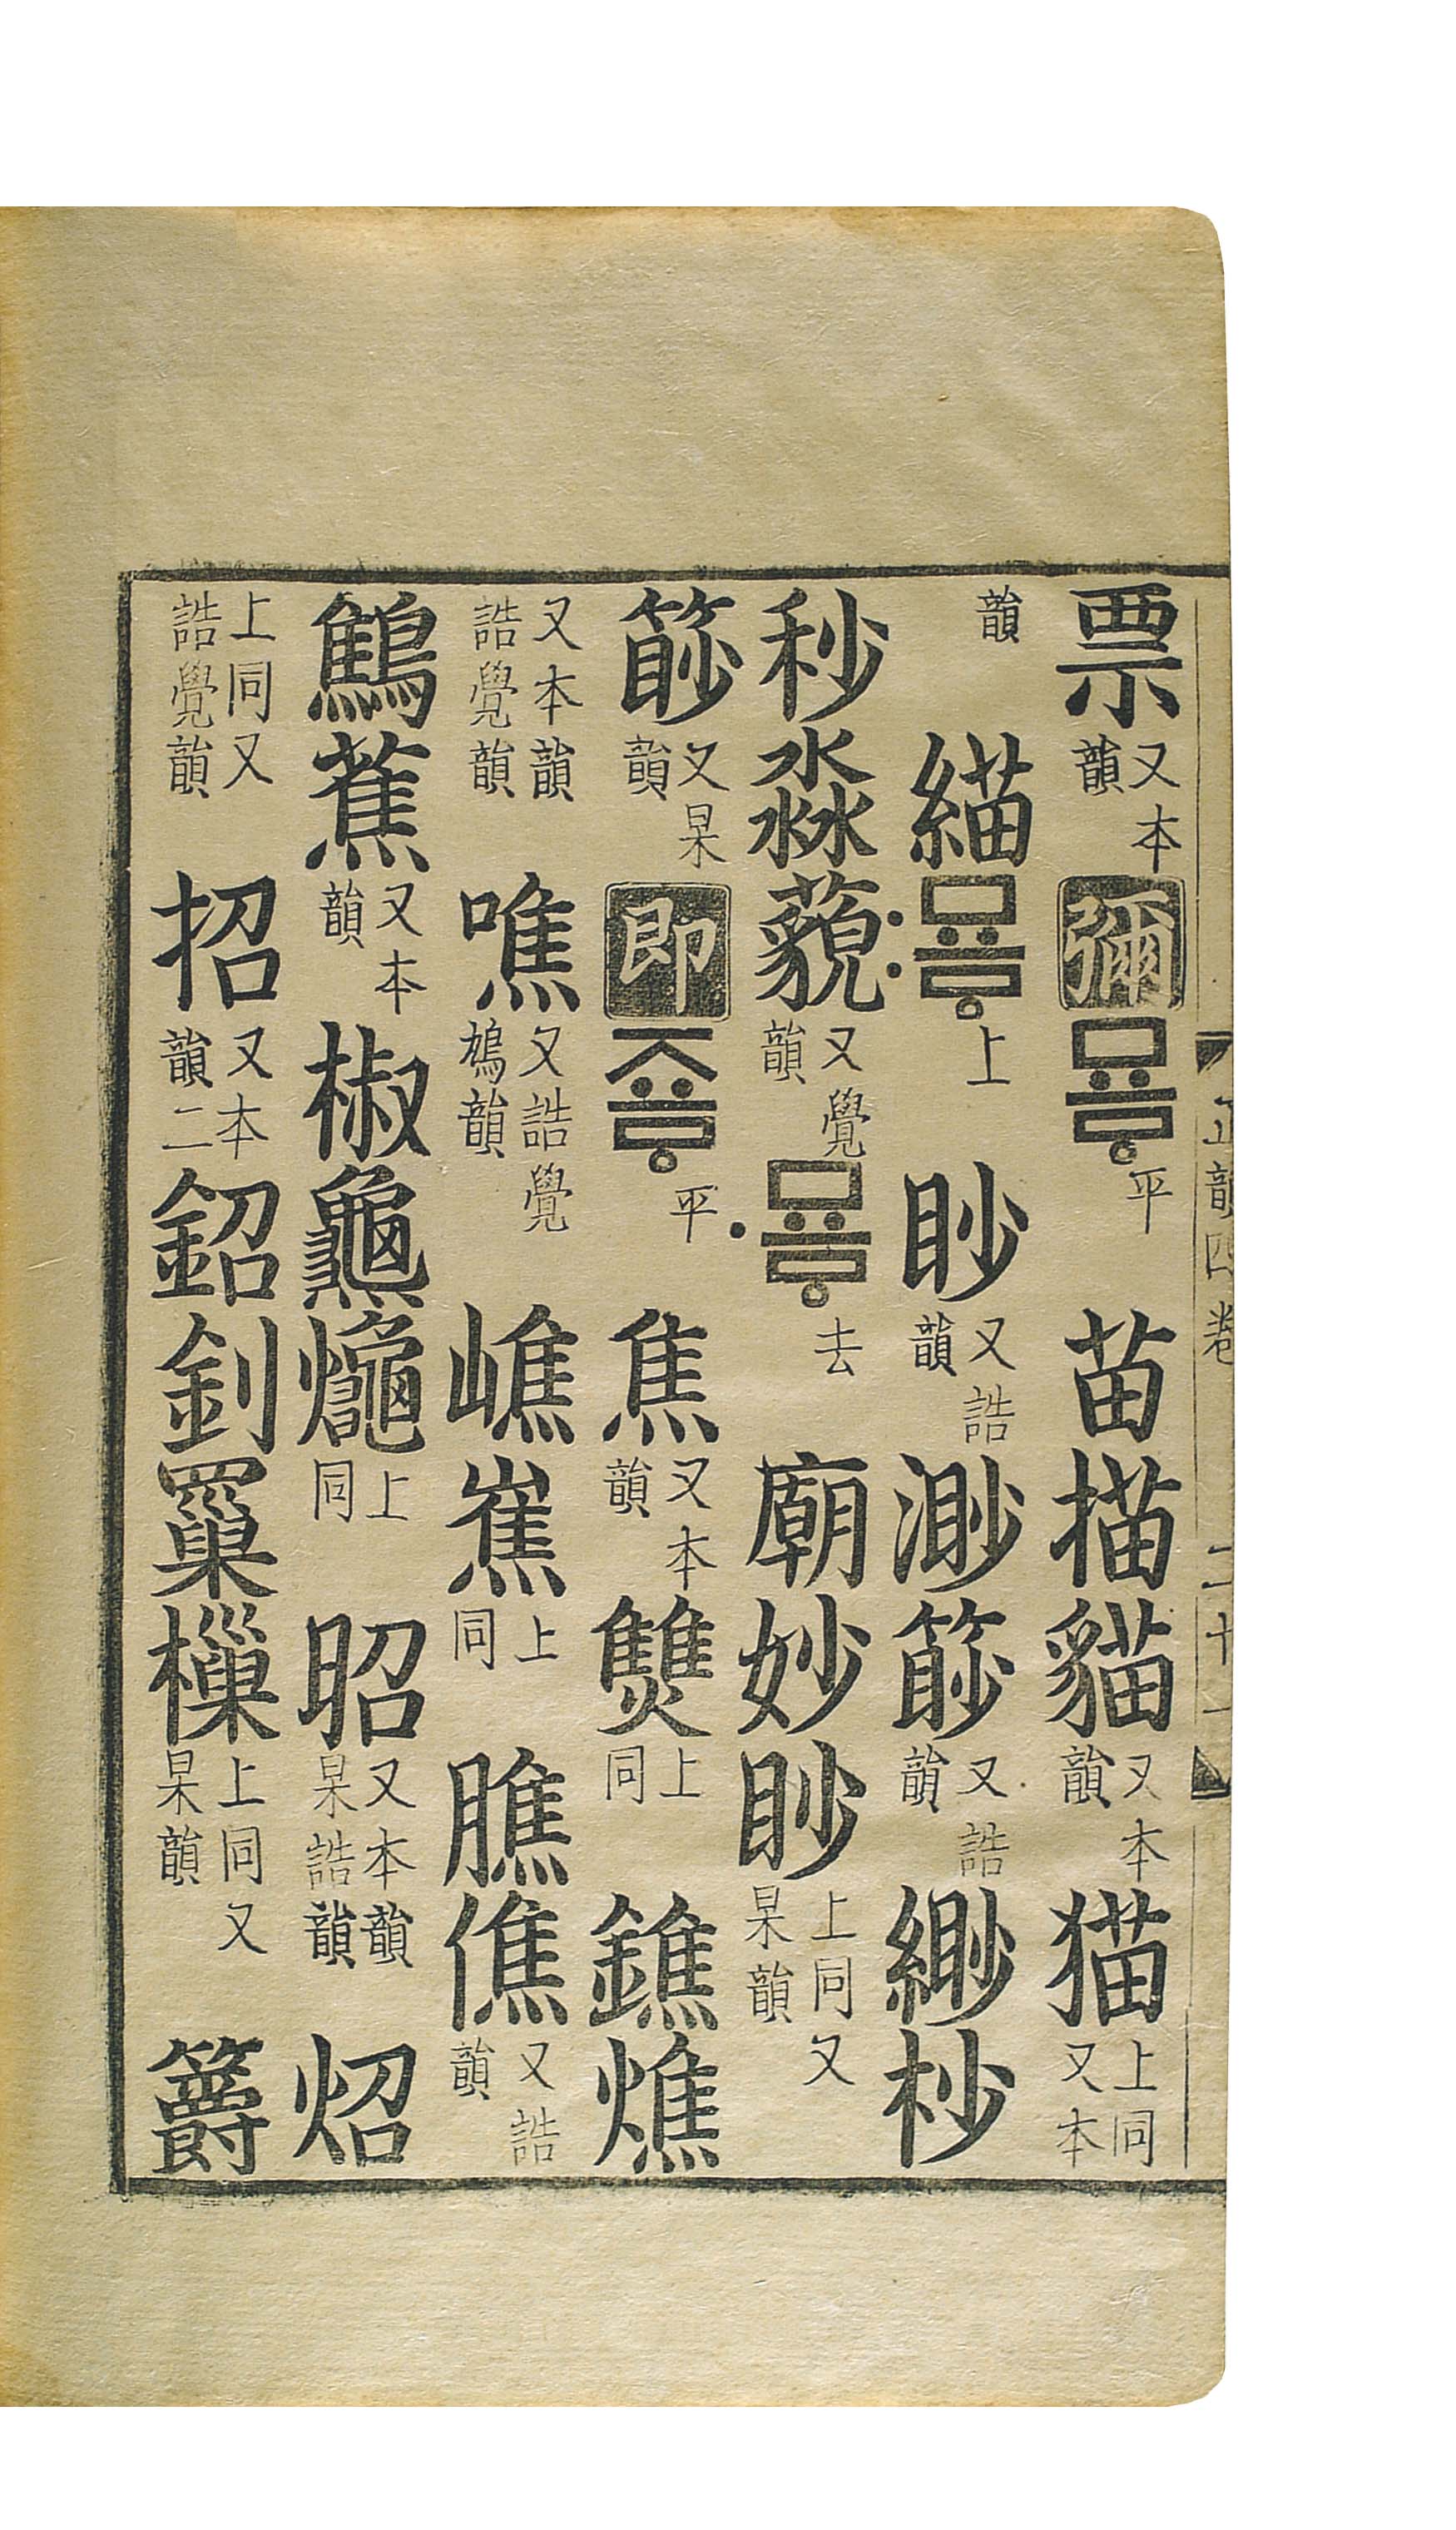 正韻四卷 二十一
票又本韻彌묘ᇢ平苗描貓又本韻猫上同又本
韻緢〯묘ᇢ上眇又誥韻渺篎又誥韻緲杪
秒淼藐又覺韻〮묘ᇢ去廟妙眇上同又杲韻
篎又杲韻即죠ᇢ平焦又本韻上同鐎燋
又本韻誥覺韻噍又誥覺鳩韻嶕嶣上同膲僬又誥韻
鷦蕉又本韻椒上同昭又本韻杲誥韻炤
上同又誥覺韻招又本韻二鉊釗罺樔上同又杲韻